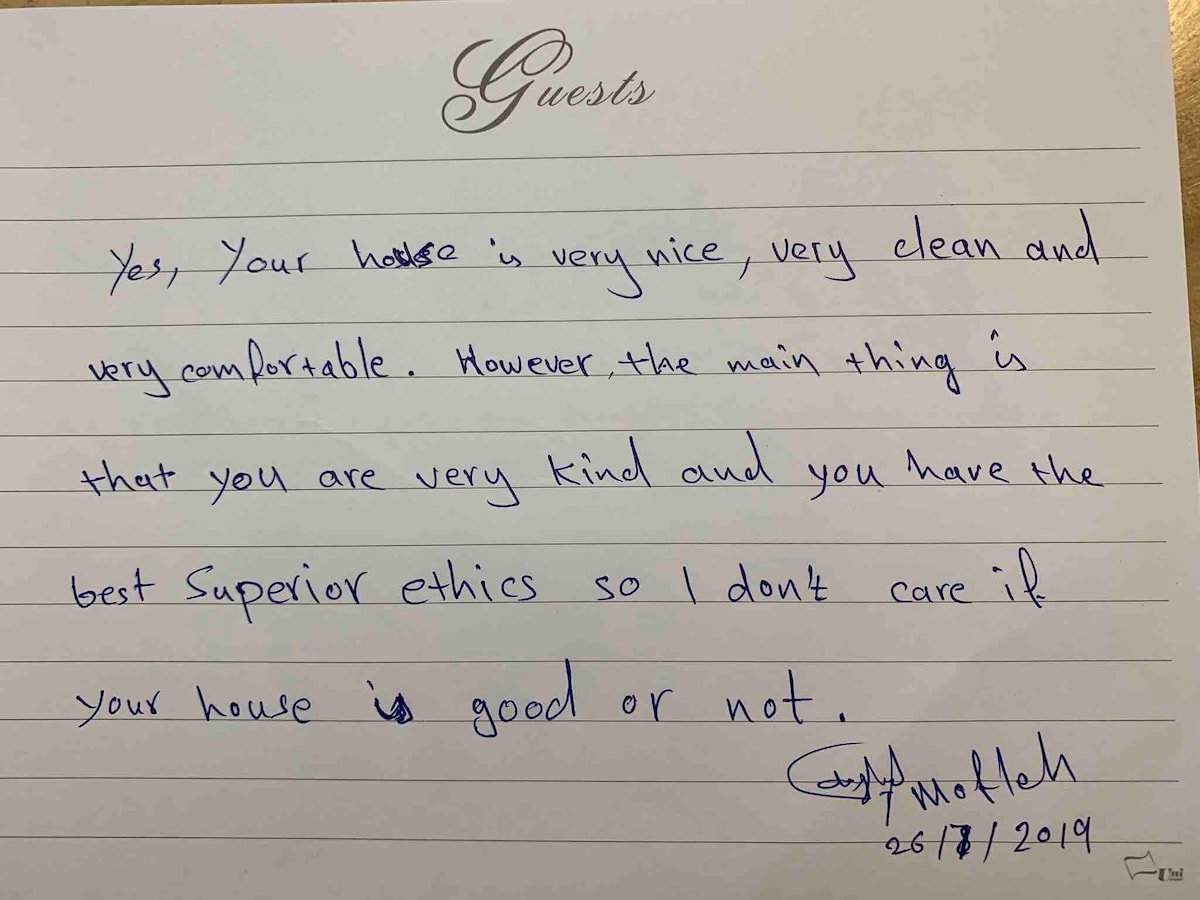 Guests
Yes, Your house is very nice, very clean and
very comfortable. However, the main thing is
that you are very kind and you have the
best Superior ethics so I don't care if
your house is good or not.
Mofleh
26/7/2019
Uni